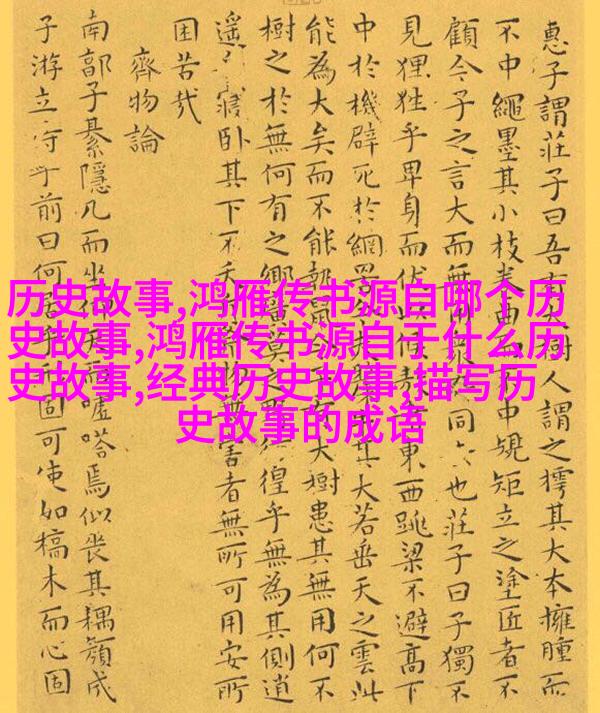 历史故事,鸿雁传书源自哪个历
史故事,鸿雁传书源自于什么历
史故事,经典历史故事,描写历
史故事的成语
惠子謂莊子曰吾有大樹人謂之樗其大本擁腫而
不中繩墨其小枝卷曲而不中規矩立之塗匠者不
顧今子之言大而無用眾所同去也莊子曰子獨不
見狸狌乎卑身而伏以候敖者東西跳梁不避高下
中於機辟死於網罟其大若垂天之雲此
能為大矣而不能執鼠今子有大樹患其無用何不
樹之於無何有之鄉廣莫之野彷徨乎無為其側逍
遙寢臥其下不夭物無害者無所可用安所
困苦哉
齊物論
南郭子綦隱几而坐仰天而噓嗒焉似喪其耦顏成
子游立侍乎前曰何居乎形固可使如槁木而心固